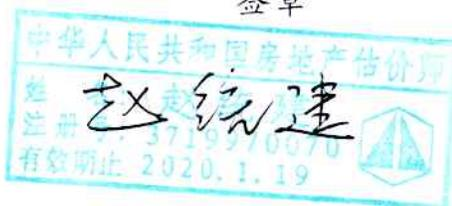 签章
中华人民共和国房地产估价师
姓名 赵统建
注册号 3719970070
有效期止 2020.1.19